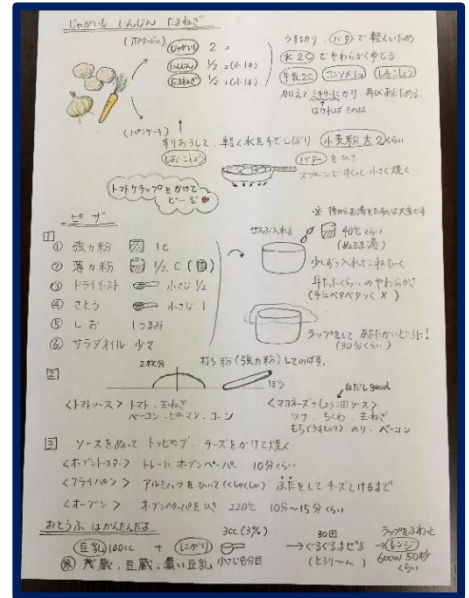 じゃがいも にんじん たまねぎ
(ポタージュ)
じゃがいも 2コ
にんじん 1/2コ
たまねぎ 1/2コ
うすぎり バターで軽くいため
水2Cでやわらかくゆでる
牛乳2C コンソメ1コ しおこしょう
加えてミキサーにかけ 再びあたためる
なければ そのまま
(パンケーキ)
すりおろして、軽く水を手でしぼり 小麦粉 大2くらい
しおこしょう
バターをひき
スプーンですくって 小さく焼く
トマトケチャップをかけて
どーぞ
ピザ
※ 後からお湯をたすのは大変です
1
① 強力粉 1C
② 薄力粉 1/2C
③ ドライイースト 小さじ 1/2
④ さとう 小さじ 1
⑤ しお 1つまみ
⑥ サラダオイル 少々
ぜんぶ入れる
40℃くらい
(ぬるま湯)
少しずつ入れてこねていく
耳たぶくらいのやわらかさ
(手にベタベタつく ×)
ラップをして あたたかいところに!
(30分くらい)
打ち粉(強力粉)してのばす。
2
2枚分
ぼう
白だし good
<トマトソース> トマト、玉ねぎ
ベーコン、ピーマン、コーン
<マヨネーズ+しょう油ソース>
ツナ、ちくわ、玉ねぎ
もち(うすぎり) のり、ベーコン
3 ソースをぬって トッピング、チーズをかけて焼く
<オーブントースター> トレーにオーブンペーパー 10分くらい
<フライパン> アルミホフをひいて(くしゃくしゃ) ふたをしてチーズとけるまで
<オーブン> オーブンペーパーをひき 220℃ 10分~15分くらい
おとうふ、はかんたんだよ
豆乳100cc + にがり
30cc (3%)
小さじ8分目
30回
→ぐるぐるまぜる
(とろり〜ん)
ラップをふわっと
→レンジ
600w 50秒
くらい
濃い豆乳